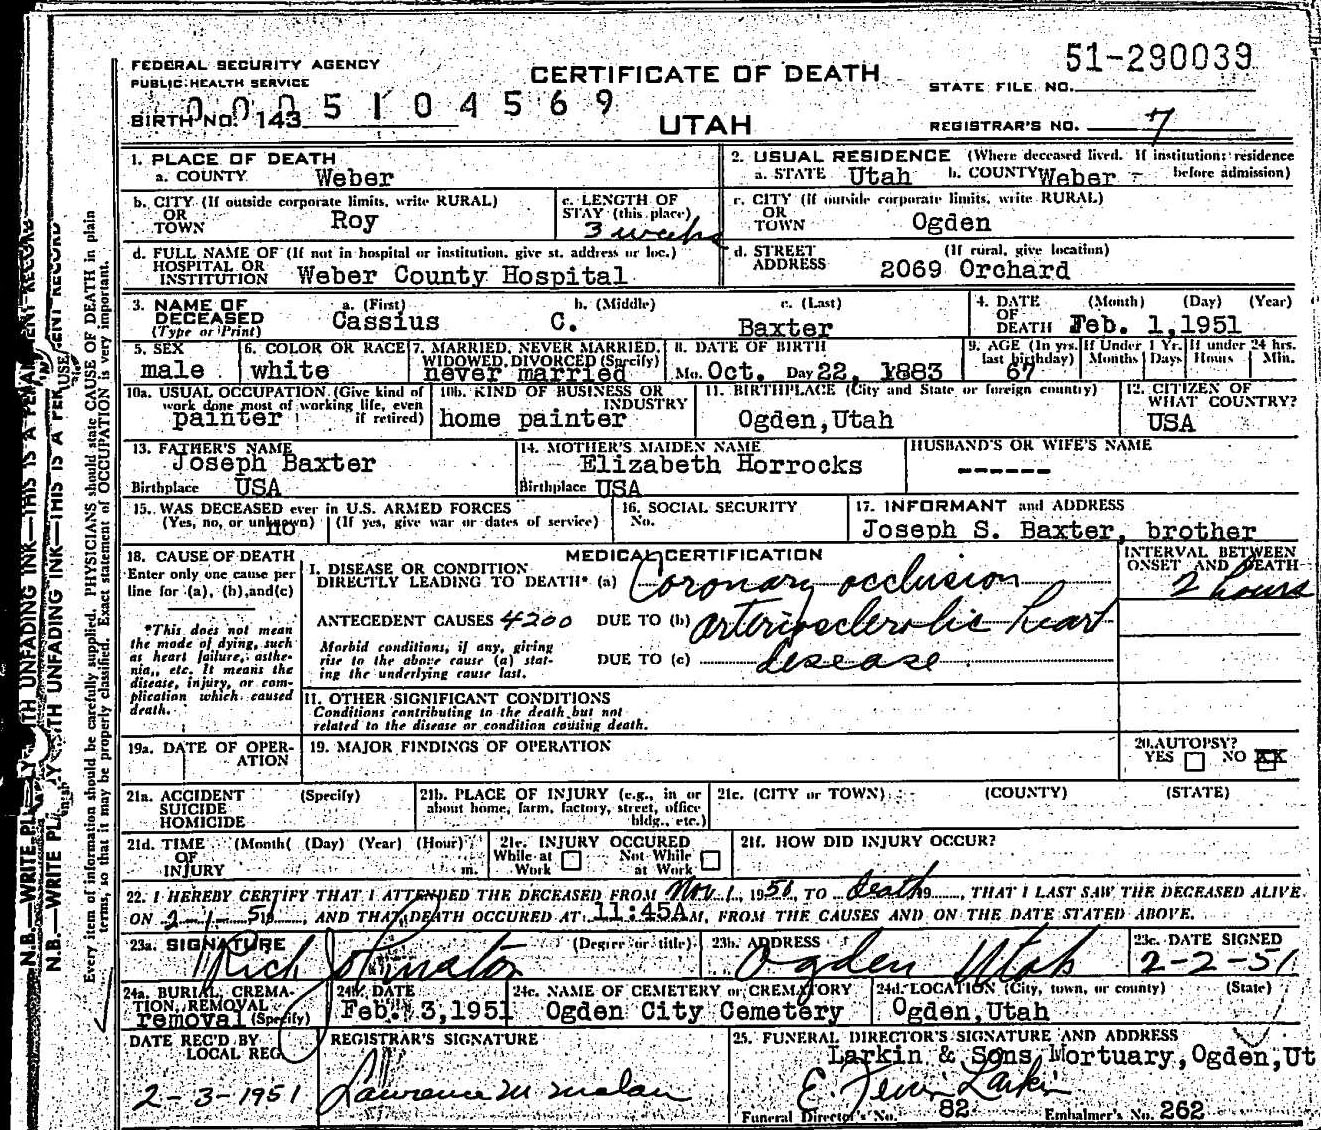 51-290039
FEDERAL SECURITY AGENCY
PUBLIC HEALTH SERVICE
CERTIFICATE OF DEATH
STATE FILE NO.
0005104569
BIRTH NO. 143
UTAH
REGISTRAR'S NO. 7
1. PLACE OF DEATH
a. COUNTY Weber
2. USUAL RESIDENCE (Where deceased lived. If institution: residence before admission)
a. STATE Utah b. COUNTY Weber
b. CITY (If outside corporate limits, write RURAL)
OR TOWN Roy
c. LENGTH OF STAY (this place)
3 weeks
c. CITY (if outside corporate limits, write RURAL)
OR TOWN Ogden
d. FULL NAME OF (If not in hospital or institution, give st. address or loc.)
HOSPITAL OR INSTITUTION Weber County Hospital
d. STREET ADDRESS (If rural, give location)
2069 Orchard
3. NAME OF DECEASED (Type or Print)
a. (First) b. (Middle) c. (Last)
Cassius C. Baxter
4. DATE OF DEATH (Month) (Day) (Year)
Feb. 1,1951
5. SEX
male
6. COLOR OR RACE
white
7. MARRIED, NEVER MARRIED, WIDOWED, DIVORCED (Specify)
never married
8. DATE OF BIRTH
Mo. Oct. Day 22, 1883
9. AGE (In yrs. last birthday) 67
If Under 1 Yr. Months Days
If under 24 hrs. Hours Min.
10a. USUAL OCCUPATION (Give kind of work done most of working life, even if retired)
painter
10b. KIND OF BUSINESS OR INDUSTRY
home painter
11. BIRTHPLACE (City and State or foreign country)
Ogden,Utah
12. CITIZEN OF WHAT COUNTRY?
USA
13. FATHER'S NAME
Joseph Baxter
Birthplace USA
14. MOTHER'S MAIDEN NAME
Elizabeth Horrocks
Birthplace USA
HUSBAND'S OR WIFE'S NAME
------
15. WAS DECEASED ever in U.S. ARMED FORCES
(Yes, no, or unknown) (If yes, give war or dates of service)
no
16. SOCIAL SECURITY No.
17. INFORMANT and ADDRESS
Joseph S. Baxter, brother
18. CAUSE OF DEATH
Enter only one cause per line for (a), (b), and (c)
*This does not mean the mode of dying, such as heart failure, asthenia, etc. It means the disease, injury, or complication which caused death.
MEDICAL CERTIFICATION
INTERVAL BETWEEN ONSET AND DEATH
I. DISEASE OR CONDITION DIRECTLY LEADING TO DEATH* (a) Coronary occlusion
2 hours
ANTECEDENT CAUSES 4200 DUE TO (b) arteriosclerotic heart
Morbid conditions, if any, giving rise to the above cause (a) stating the underlying cause last.
DUE TO (c) disease
II. OTHER SIGNIFICANT CONDITIONS
Conditions contributing to the death but not related to the disease or condition causing death.
19a. DATE OF OPERATION
19. MAJOR FINDINGS OF OPERATION
20. AUTOPSY?
YES NO XX
21a. ACCIDENT SUICIDE HOMICIDE (Specify)
21b. PLACE OF INJURY (e.g., in or about home, farm, factory, street, office bldg., etc.)
21c. (CITY or TOWN) (COUNTY) (STATE)
21d. TIME OF INJURY (Month( (Day) (Year) (Hour) m.
21e. INJURY OCCURED
While at Work Not While at Work
21f. HOW DID INJURY OCCUR?
22. I HEREBY CERTIFY THAT I ATTENDED THE DECEASED FROM Nov 1, 1950, TO death 19, THAT I LAST SAW THE DECEASED ALIVE
ON 2-1-51, AND THAT DEATH OCCURED AT 11:45A M, FROM THE CAUSES AND ON THE DATE STATED ABOVE.
23a. SIGNATURE (Degree or title)
Rich Johnston
23b. ADDRESS
Ogden Utah
23c. DATE SIGNED
2-2-51
24a. BURIAL, CREMATION, REMOVAL (Specify)
removal
24b. DATE
Feb. 3,1951
24c. NAME OF CEMETERY or CREMATORY
Ogden City Cemetery
24d. LOCATION (City, town, or county) (State)
Ogden,Utah
DATE REC'D BY LOCAL REG.
2-3-1951
REGISTRAR'S SIGNATURE
Lawrence M Malan
25. FUNERAL DIRECTOR'S SIGNATURE AND ADDRESS
Larkin & Sons Mortuary,Ogden,Ut
Larkin
Funeral Director's No. 82 Embalmer's No. 262
Every item of information should be carefully supplied. PHYSICIANS should state CAUSE OF DEATH in plain
terms, so that it may be properly classified. Exact statement of OCCUPATION is very important.